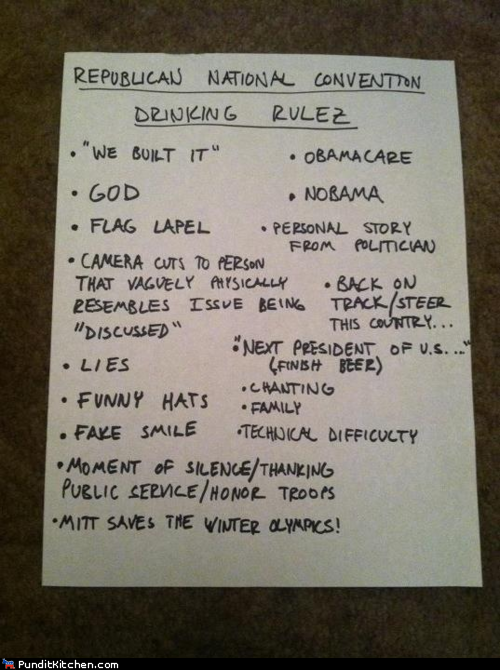 REPUBLICAN NATIONAL CONVENTION
DRINKING RULEZ
• "WE BUILT IT"
• GOD
• FLAG LAPEL
• CAMERA CUTS TO PERSON
THAT VAGUELY PHYSICALLY
RESEMBLES ISSUE BEING
"DISCUSSED"
• LIES
• FUNNY HATS
• FAKE SMILE
• OBAMACARE
• NOBAMA
• PERSONAL STORY
FROM POLITICIAN
• BACK ON
TRACK/STEER
THIS COUNTRY...
• "NEXT PRESIDENT OF U.S..."
(FINISH BEER)
• CHANTING
• FAMILY
• TECHNICAL DIFFICULTY
• MOMENT OF SILENCE/THANKING
PUBLIC SERVICE/HONOR TROOPS
• MITT SAVES THE WINTER OLYMPICS!
PunditKitchen.com